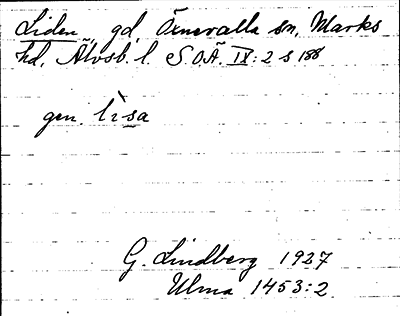 Liden, gd, Öxnevalla sn, Marks
hd, Älvsb. l. SOÄ IX:2 s 188
gen. lì2sa
G. Lindberg 1927
Ulma 1453:2